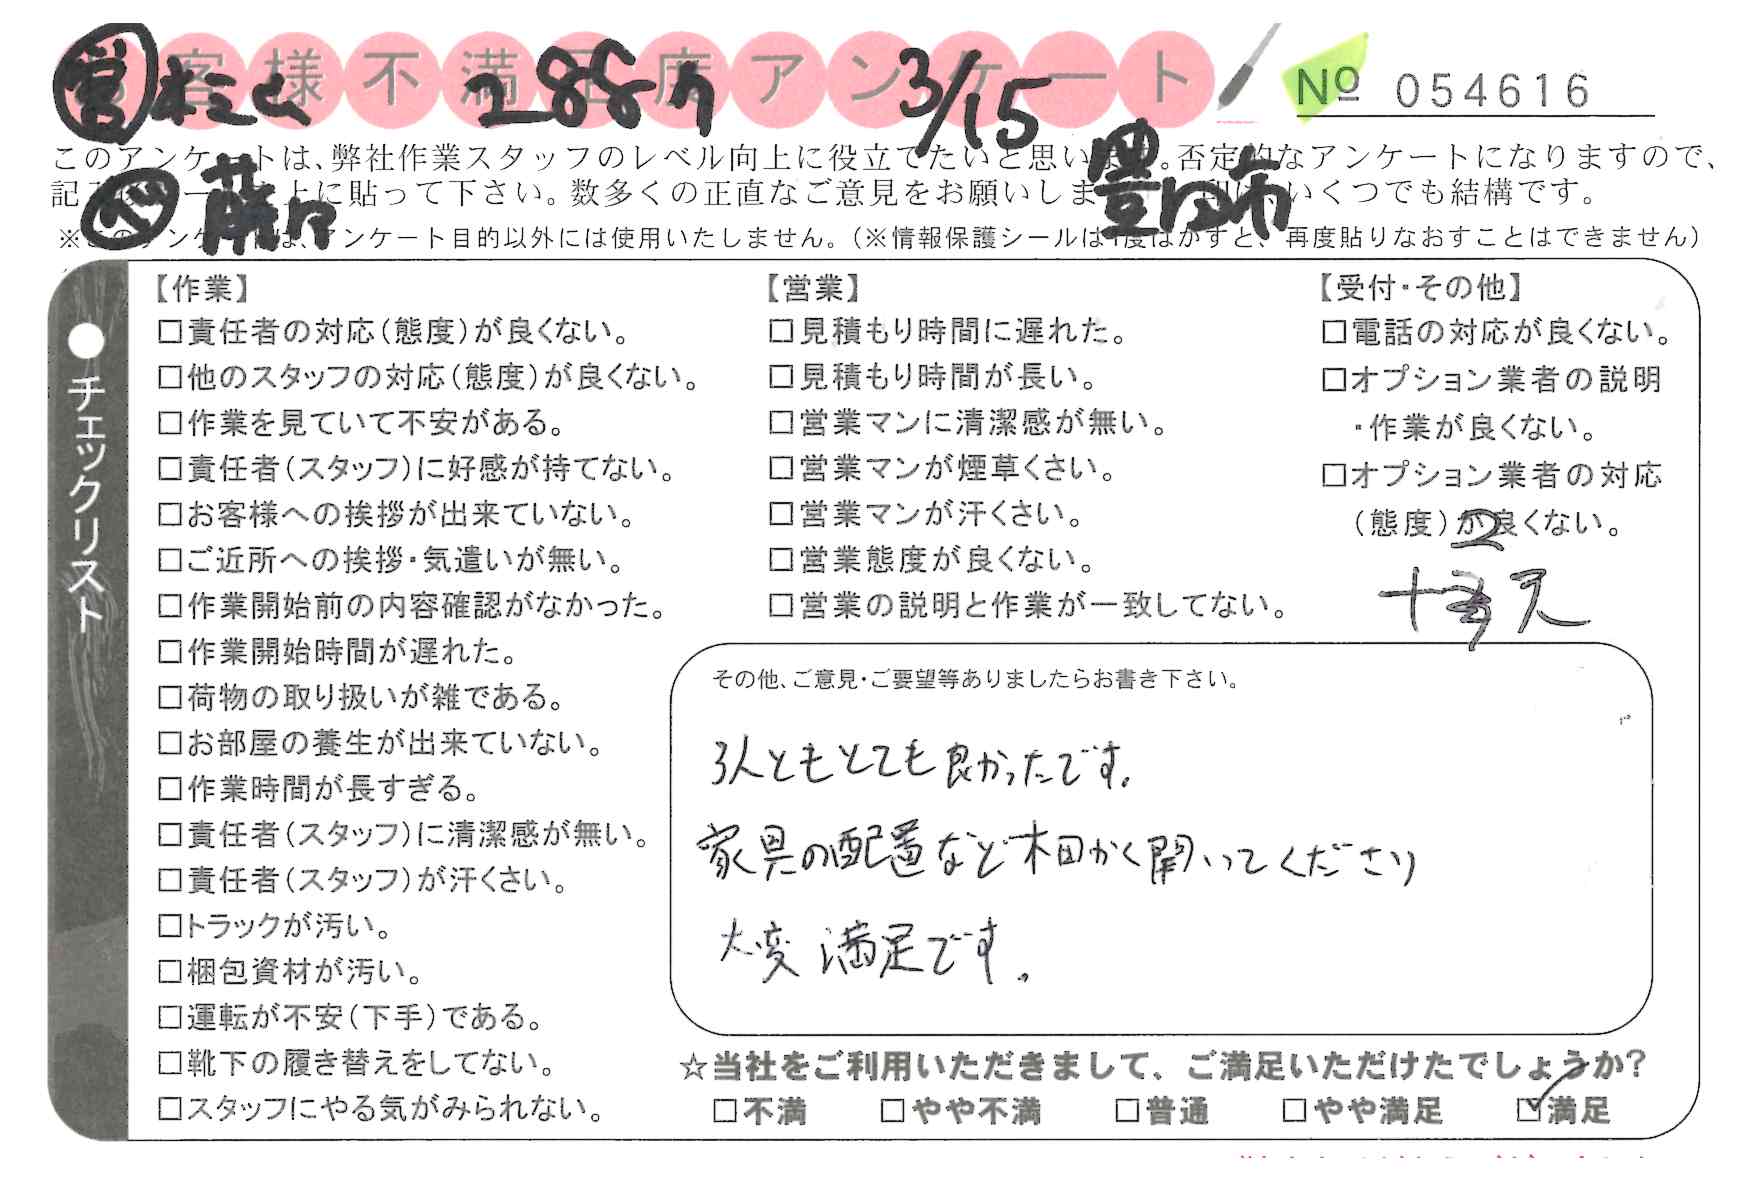 お客様不満足度アンケート
営 288カ 3/15
No 054616
このアンケートは、弊社作業スタッフのレベル向上に役立てたいと思います。否定的なアンケートになりますので、
豊田市
記 上に貼って下さい。数多くの正直なご意見をお願いしま いくつでも結構です。
※このアンケートは、アンケート目的以外には使用いたしません。(※情報保護シールは1度はがすと、再度貼りなおすことはできません)
●チェックリスト
【作業】
□責任者の対応(態度)が良くない。
□他のスタッフの対応(態度)が良くない。
□作業を見ていて不安がある。
□責任者(スタッフ)に好感が持てない。
□お客様への挨拶が出来ていない。
□ご近所への挨拶・気遣いが無い。
□作業開始前の内容確認がなかった。
□作業開始時間が遅れた。
□荷物の取り扱いが雑である。
□お部屋の養生が出来ていない。
□作業時間が長すぎる。
□責任者(スタッフ)に清潔感が無い。
□責任者(スタッフ)が汗くさい。
□トラックが汚い。
□梱包資材が汚い。
□運転が不安(下手)である。
□靴下の履き替えをしてない。
□スタッフにやる気がみられない。
【営業】
□見積もり時間に遅れた。
□見積もり時間が長い。
□営業マンに清潔感が無い。
□営業マンが煙草くさい。
□営業マンが汗くさい。
□営業態度が良くない。
□営業の説明と作業が一致してない。
【受付・その他】
□電話の対応が良くない。
□オプション業者の説明
・作業が良くない。
□オプション業者の対応
(態度)が良くない。
その他、ご意見・ご要望等ありましたらお書き下さい。
3人ともとても良かったです。
家具の配置など細かく聞いてくださり
大変満足です。
☆当社をご利用いただきまして、ご満足いただけたでしょうか?
□不満 □やや不満 □普通 □やや満足 ☑満足